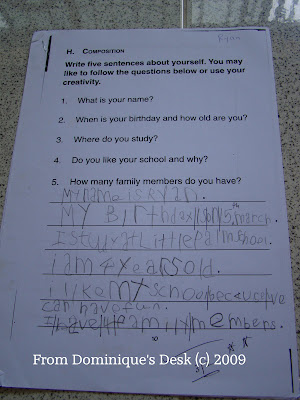 Ryan
H. COMPOSITION
Write five sentences about yourself. You may
like to follow the questions below or use your
creativity.
1. What is your name?
2. When is your birthday and how old are you?
3. Where do you study?
4. Do you like your school and why?
5. How many family members do you have?
My name is Ryan.
My Birthday is on 15th march.
I study at Little Palm Shool.
i am 4 years old.
i like my school because we
can have fun.
I have 4 family members.
10
From Dominique's Desk (c) 2009